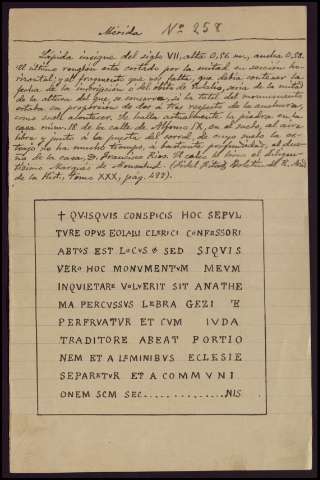 Mérida Nº 258
Lápida insigne del siglo VII, alta 0,56 m., ancha 0,50.
El último renglón está cortado por la mitad en sección ho-
rizontal; y el fragmento que nos falta, que debía contener la
fecha de la inhumación ó del óbito de Eulalio, sería de la mitad
de la altura del que se conserva, si la total del monumento
estaba en proporción de dos á tres respecto de la anchura,
como suele acontecer. Se halla actualmente la piedra en la
casa núm. 18 de la calle de Alfonso IX, en el suelo, al aire
libre y junto á la puerta del corral, de cuyo suelo la ex-
trajo no ha mucho tiempo, á bastante profundidad, el due-
ño de la casa, D. Francisco Rios. El calco lo hizo el diligen-
tísimo Marqués de Monsalud. (Fidel Fita, Boletín del R. Acad.
de la Hist., tomo XXX, pág. 497).
† QUISQUIS CONSPICIS HOC SEPUL
TVRE OPUS EOLALII CLERICI CONFESSORI
ABTUS EST LOCUS SED SIQUIS
VERO HOC MONVMENTVM MEVM
INQUIETARE VOLVERIT SIT ANATHE
MA PERCVSSUS LEBRA GEZI E
PERFRVATVR ET CVM IVDA
TRADITORE ABEAT PORTIO
NEM ET A LEMINIBUS ECLESIE
SEPARETVR ET A COMMVNI
ONEM SCM SEC............NIS